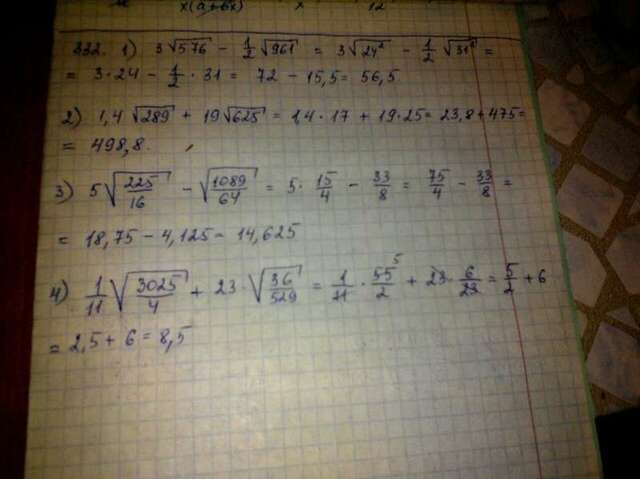 x(a+6x) x 12
332. 1) 3√576 - 1/2 √961 = 3√24² - 1/2 √31² =
= 3·24 - 1/2 · 31 = 72 - 15,5 = 56,5
2) 1,4 √289 + 19√625 = 1,4 · 17 + 19·25 = 23,8 + 475 =
= 498,8.
3) 5√225/16 - √1089/64 = 5· 15/4 - 33/8 = 75/4 - 33/8 =
= 18,75 - 4,125 = 14,625
4) 1/11 √3025/4 + 23·√36/529 = 1/11 · 55/2 5 + 23· 6/23 = 5/2 + 6
= 2,5 + 6 = 8,5